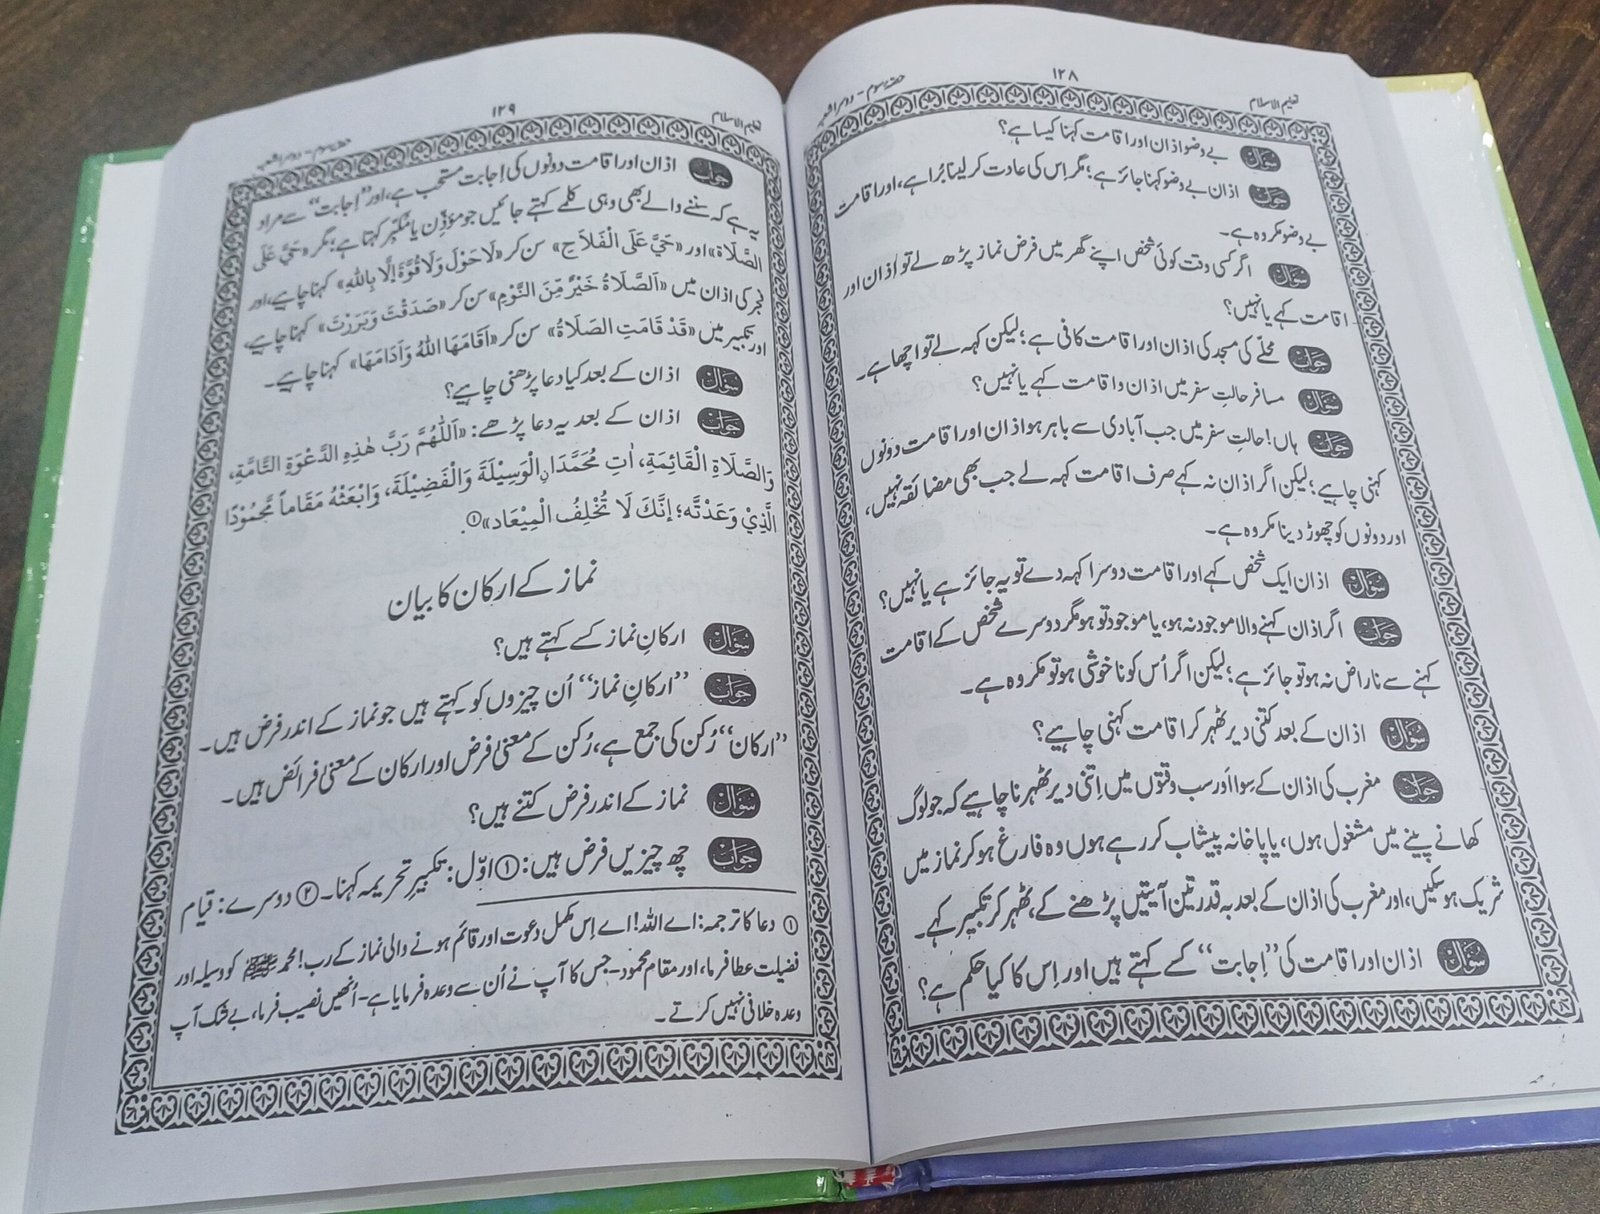 تعلیم الاسلام
۱۲۸
حصہ سوم - دوسرا شعبہ
سوال بے وضو اذان اور اقامت کہنا کیسا ہے؟
جواب اذان بے وضو کہنا جائز ہے؛ مگر اِس کی عادت کرلینا بُرا ہے، اور اقامت
بے وضو مکروہ ہے۔
سوال اگر کسی وقت کوئی شخص اپنے گھر میں فرض نماز پڑھ لے تو اذان اور
اقامت کہے یا نہیں؟
جواب محلّے کی مسجد کی اذان اور اقامت کافی ہے؛ لیکن کہہ لے تو اچھا ہے۔
سوال مسافر حالتِ سفر میں اذان و اقامت کہے یا نہیں؟
جواب ہاں! حالتِ سفر میں جب آبادی سے باہر ہو اذان اور اقامت دونوں
کہنی چاہیے؛ لیکن اگر اذان نہ کہے صرف اقامت کہہ لے جب بھی مضائقہ نہیں،
اور دونوں کو چھوڑ دینا مکروہ ہے۔
سوال اذان ایک شخص کہے اور اقامت دوسرا کہہ دے تو یہ جائز ہے یا نہیں؟
جواب اگر اذان کہنے والا موجود نہ ہو، یا موجود تو ہو مگر دوسرے شخص کے اقامت
کہنے سے ناراض نہ ہو تو جائز ہے؛ لیکن اگر اُس کو ناخوشی ہو تو مکروہ ہے۔
سوال اذان کے بعد کتنی دیر ٹھہر کر اقامت کہنی چاہیے؟
جواب مغرب کی اذان کے سِوا اَور سب وقتوں میں اِتنی دیر ٹھہرنا چاہیے کہ جو لوگ
کھانے پینے میں مشغول ہوں، یا پاخانہ پیشاب کر رہے ہوں وہ فارغ ہو کر نماز میں
شریک ہو سکیں، اور مغرب کی اذان کے بعد بہ قدر تین آیتیں پڑھنے کے، ٹھہر کر تکبیر کہے۔
سوال اذان اور اقامت کی ’’اِجابت‘‘ کسے کہتے ہیں اور اِس کا کیا حکم ہے؟
تعلیم الاسلام
۱۲۹
حصہ سوم - دوسرا شعبہ
جواب اذان اور اقامت دونوں کی اِجابت مستحب ہے، اور ’’اِجابت‘‘ سے مراد
یہ ہے کہ سننے والے بھی وہی کلمے کہتے جائیں جو مؤذِّن یا مُکبِّر کہتا ہے؛ مگر «حَيَّ عَلَى
الصَّلَاة» اور «حَيَّ عَلَى الْفَلَاحِ» سن کر «لَا حَوْلَ وَلَا قُوَّةَ إِلَّا بِاللهِ» کہنا چاہیے، اور
فجر کی اذان میں «اَلصَّلَاةُ خَيْرٌ مِّنَ النَّوْمِ» سن کر «صَدَقْتَ وَبَرَرْتَ» کہنا چاہیے،
اور تکبیر میں «قَدْ قَامَتِ الصَّلَاةُ» سن کر «أَقَامَهَا اللهُ وَأَدَامَهَا» کہنا چاہیے۔
سوال اذان کے بعد کیا دعا پڑھنی چاہیے؟
جواب اذان کے بعد یہ دعا پڑھے: «اَللّٰهُمَّ رَبَّ هٰذِهِ الدَّعْوَةِ التَّامَّةِ،
وَالصَّلَاةِ الْقَائِمَةِ، اٰتِ مُحَمَّدَانِ الْوَسِيْلَةَ وَالْفَضِيْلَةَ، وَابْعَثْهُ مَقَاماً مَّحْمُوْدًا
الَّذِيْ وَعَدْتَّه؛ إِنَّكَ لَا تُخْلِفُ الْمِيْعَاد»①.
نماز کے ارکان کا بیان
سوال ارکانِ نماز کسے کہتے ہیں؟
جواب ’’ارکانِ نماز‘‘ اُن چیزوں کو کہتے ہیں جو نماز کے اندر فرض ہیں۔
’’ارکان‘‘ رُکن کی جمع ہے، رُکن کے معنیٰ فرض اور ارکان کے معنیٰ فرائض ہیں۔
سوال نماز کے اندر فرض کتنے ہیں؟
جواب چھ چیزیں فرض ہیں: ① اوّل: تکبیرِ تحریمہ کہنا۔ ② دوسرے: قیام
① دعا کا ترجمہ: اے اللہ! اے اِس مکمل دعوت اور قائم ہونے والی نماز کے رب! محمد ﷺ کو وسیلہ اور
فضیلت عطا فرما، اور مقام محمود - جس کا آپ نے اُن سے وعدہ فرمایا ہے - اُنھیں نصیب فرما، بے شک آپ
وعدہ خلافی نہیں کرتے۔